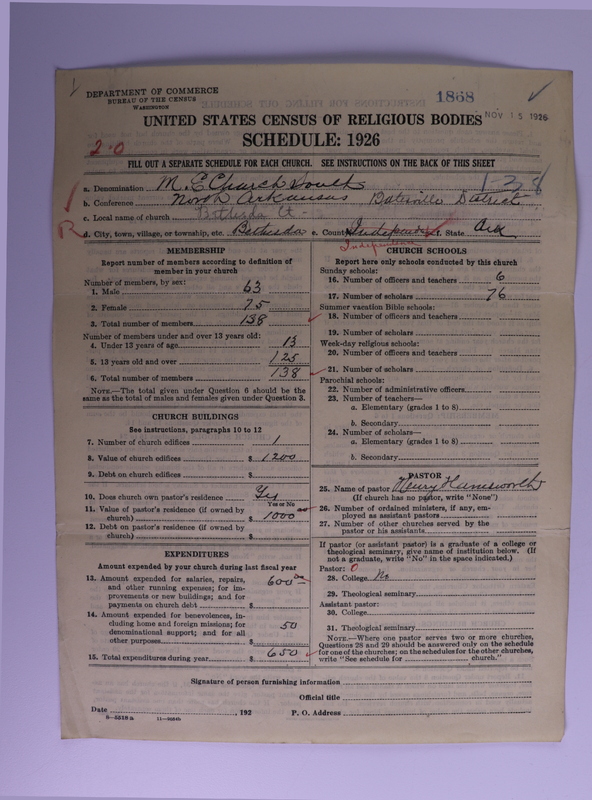 DEPARTMENT OF COMMERCE
BUREAU OF THE CENSUS
WASHINGTON
1868
NOV 15 1926
UNITED STATES CENSUS OF RELIGIOUS BODIES
SCHEDULE: 1926
2-0
FILL OUT A SEPARATE SCHEDULE FOR EACH CHURCH. SEE INSTRUCTIONS ON THE BACK OF THIS SHEET
a. Denomination M. E. Church South 1-38
b. Conference North Arkansas Batesville District
c. Local name of church Bethesda Ct-
R d. City, town, village, or township, etc. Bethesda e. County Independence f. State Ark
Independence
MEMBERSHIP
Report number of members according to definition of
member in your church
Number of members, by sex:
1. Male 63
2. Female 75
3. Total number of members 138
Number of members under and over 13 years old:
4. Under 13 years of age 13
5. 13 years old and over 125
6. Total number of members 138
NOTE.—The total given under Question 6 should be the
same as the total of males and females given under Question 3.
CHURCH BUILDINGS
See instructions, paragraphs 10 to 12
7. Number of church edifices 1
8. Value of church edifices $ 1200
9. Debt on church edifices $
10. Does church own pastor's residence Yes
Yes or No
11. Value of pastor's residence (if owned by
church) $ 1000
12. Debt on pastor's residence (if owned by
church) $
EXPENDITURES
Amount expended by your church during last fiscal year
13. Amount expended for salaries, repairs,
and other running expenses; for im-
provements or new buildings; and for
payments on church debt $ 600 00
14. Amount expended for benevolences, in-
cluding home and foreign missions; for
denominational support; and for all
other purposes $ 50
15. Total expenditures during year $ 650
CHURCH SCHOOLS
Report here only schools conducted by this church
Sunday schools:
16. Number of officers and teachers 6
17. Number of scholars 76
Summer vacation Bible schools:
18. Number of officers and teachers
19. Number of scholars
Week-day religious schools:
20. Number of officers and teachers
21. Number of scholars
Parochial schools:
22. Number of administrative officers
23. Number of teachers—
a. Elementary (grades 1 to 8)
b. Secondary
24. Number of scholars—
a. Elementary (grades 1 to 8)
b. Secondary
PASTOR
25. Name of pastor Henry
(If church has no pastor, write "None")
26. Number of ordained ministers, if any, em-
ployed as assistant pastors
27. Number of other churches served by the
pastor or his assistants
If pastor (or assistant pastor) is a graduate of a college or
theological seminary, give name of institution below. (If
not a graduate, write "No" in the space indicated.)
Pastor: 0
28. College No
29. Theological seminary
Assistant pastor:
30. College
31. Theological seminary
NOTE.—Where one pastor serves two or more churches,
Questions 28 and 29 should be answered only on the schedule
for one of the churches; on the schedules for the other churches,
write "See schedule for church."
Signature of person furnishing information
Official title
Date , 192 P. O. Address
8—5518 a 11—9054b